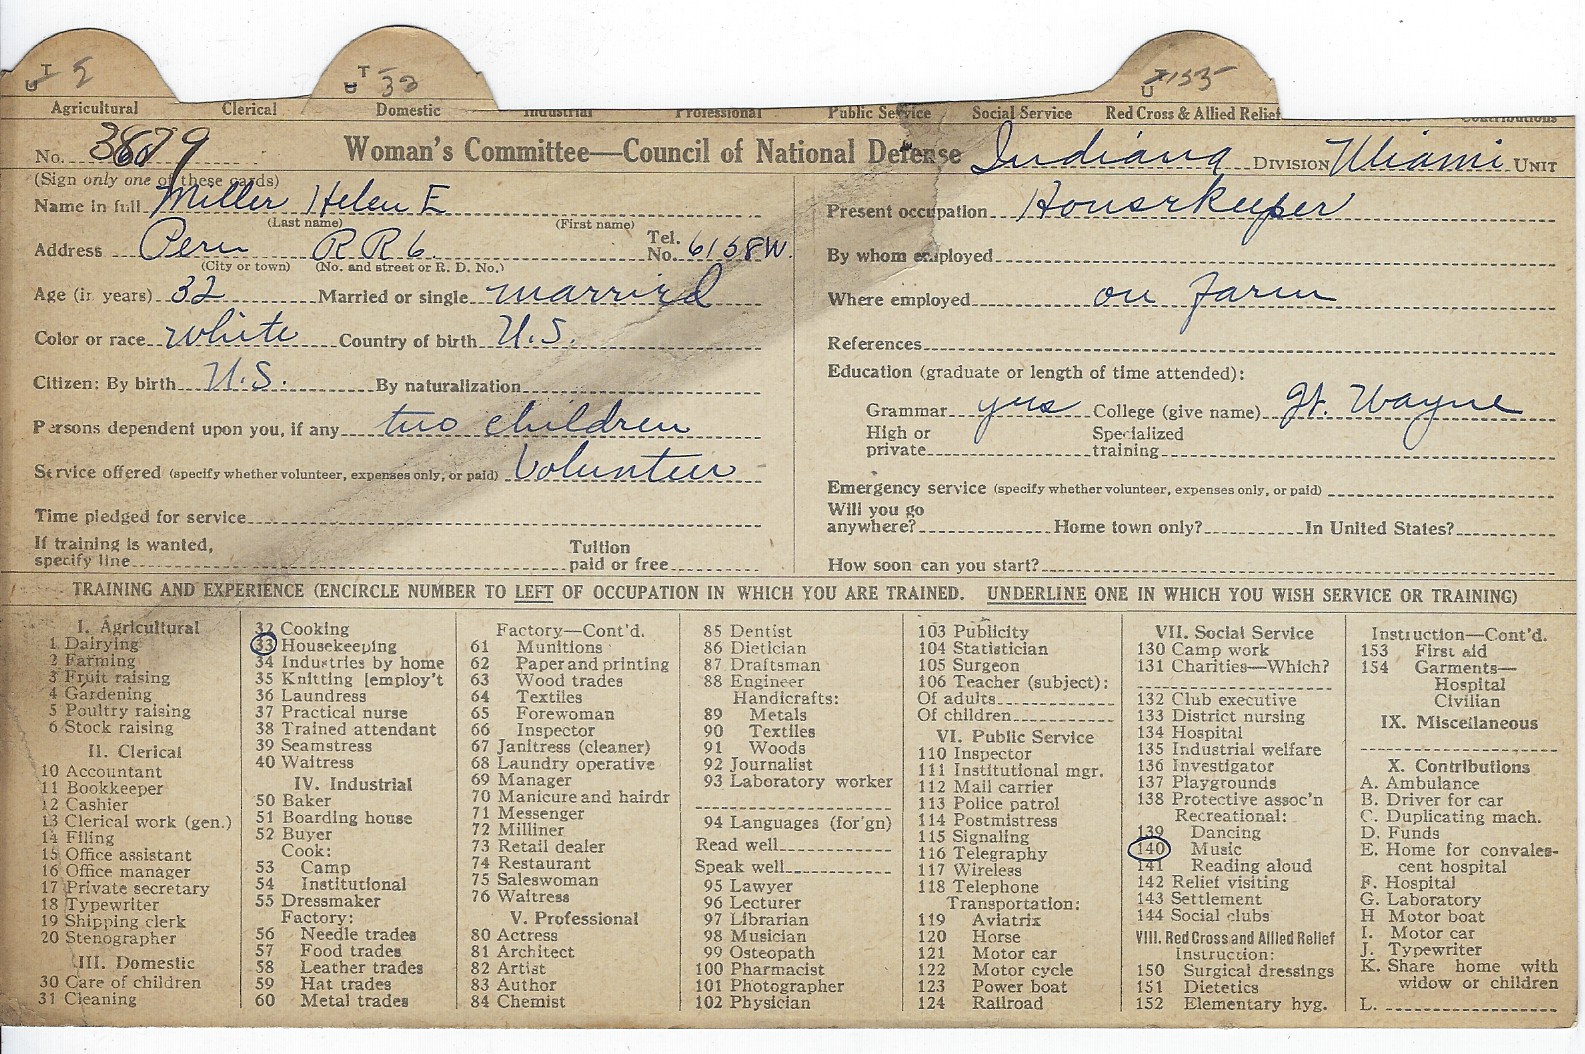 T U 5
T U 33
T U 155
Agricultural Clerical Domestic Industrial Professional Public Service Social Service Red Cross & Allied Relief Contributions
No. 3679 Woman's Committee—Council of National Defense Indiana DIVISION Miami UNIT
(Sign only one of these cards)
Name in full Miller Helen E
(Last name) (First name)
Address Peru R R 6. Tel. No. 6158W.
(City or town) (No. and street or R. D. No.)
Age (in years) 32 Married or single married
Color or race white Country of birth U.S.
Citizen: By birth U.S. By naturalization
Persons dependent upon you, if any two children
Service offered (specify whether volunteer, expenses only, or paid) Volunteer
Time pledged for service
If training is wanted, specify line Tuition paid or free
Present occupation Housekeeper
By whom employed
Where employed on farm
References
Education (graduate or length of time attended):
Grammar yes College (give name) Ft. Wayne
High or private Specialized training
Emergency service (specify whether volunteer, expenses only, or paid)
Will you go anywhere? Home town only? In United States?
How soon can you start?
TRAINING AND EXPERIENCE (ENCIRCLE NUMBER TO LEFT OF OCCUPATION IN WHICH YOU ARE TRAINED. UNDERLINE ONE IN WHICH YOU WISH SERVICE OR TRAINING)
I. Agricultural
1 Dairying
2 Farming
3 Fruit raising
4 Gardening
5 Poultry raising
6 Stock raising
II. Clerical
10 Accountant
11 Bookkeeper
12 Cashier
13 Clerical work (gen.)
14 Filing
15 Office assistant
16 Office manager
17 Private secretary
18 Typewriter
19 Shipping clerk
20 Stenographer
III. Domestic
30 Care of children
31 Cleaning
32 Cooking
33 Housekeeping
34 Industries by home
35 Knitting [employ't
36 Laundress
37 Practical nurse
38 Trained attendant
39 Seamstress
40 Waitress
IV. Industrial
50 Baker
51 Boarding house
52 Buyer
Cook:
53 Camp
54 Institutional
55 Dressmaker
Factory:
56 Needle trades
57 Food trades
58 Leather trades
59 Hat trades
60 Metal trades
Factory—Cont'd.
61 Munitions
62 Paper and printing
63 Wood trades
64 Textiles
65 Forewoman
66 Inspector
67 Janitress (cleaner)
68 Laundry operative
69 Manager
70 Manicure and hairdr
71 Messenger
72 Milliner
73 Retail dealer
74 Restaurant
75 Saleswoman
76 Waitress
V. Professional
80 Actress
81 Architect
82 Artist
83 Author
84 Chemist
85 Dentist
86 Dietician
87 Draftsman
88 Engineer
Handicrafts:
89 Metals
90 Textiles
91 Woods
92 Journalist
93 Laboratory worker
94 Languages (for'gn)
Read well
Speak well
95 Lawyer
96 Lecturer
97 Librarian
98 Musician
99 Osteopath
100 Pharmacist
101 Photographer
102 Physician
103 Publicity
104 Statistician
105 Surgeon
106 Teacher (subject):
Of adults
Of children
VI. Public Service
110 Inspector
111 Institutional mgr.
112 Mail carrier
113 Police patrol
114 Postmistress
115 Signaling
116 Telegraphy
117 Wireless
118 Telephone
Transportation:
119 Aviatrix
120 Horse
121 Motor car
122 Motor cycle
123 Power boat
124 Railroad
VII. Social Service
130 Camp work
131 Charities—Which?
132 Club executive
133 District nursing
134 Hospital
135 Industrial welfare
136 Investigator
137 Playgrounds
138 Protective assoc'n
Recreational:
139 Dancing
140 Music
141 Reading aloud
142 Relief visiting
143 Settlement
144 Social clubs
VIII. Red Cross and Allied Relief
Instruction:
150 Surgical dressings
151 Dietetics
152 Elementary hyg.
Instruction—Cont'd.
153 First aid
154 Garments—
Hospital
Civilian
IX. Miscellaneous
X. Contributions
A. Ambulance
B. Driver for car
C. Duplicating mach.
D. Funds
E. Home for convales-
cent hospital
F. Hospital
G. Laboratory
H Motor boat
I. Motor car
J. Typewriter
K. Share home with
widow or children
L.